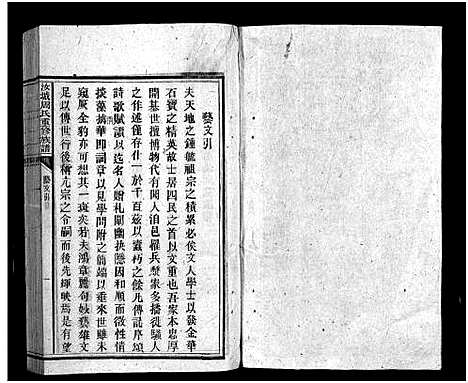 藝文引
夫天地之鍾毓祖宗之積累必俟文人學士以發金華
石寶之精英故士居四民之首以文重也吾家本忠厚
開基世擅博物代有聞人洎邑罹兵燹家多播徙騷人
著述僅存什一於千百茲以蠹朽之餘凡傳記序頌
詩歌賦讀以迄名人贈札闡幽抉隱因和順而徵性情
掞藻摛華即詞章以見學問附之簡端以垂來世雖未
窺厥全豹亦可想其一斑矣若夫鴻章麗句媲雄文
足以傳世行後稱亢宗之令嗣而後先輝映焉是有望
汝城周氏重修族譜
藝文引
一